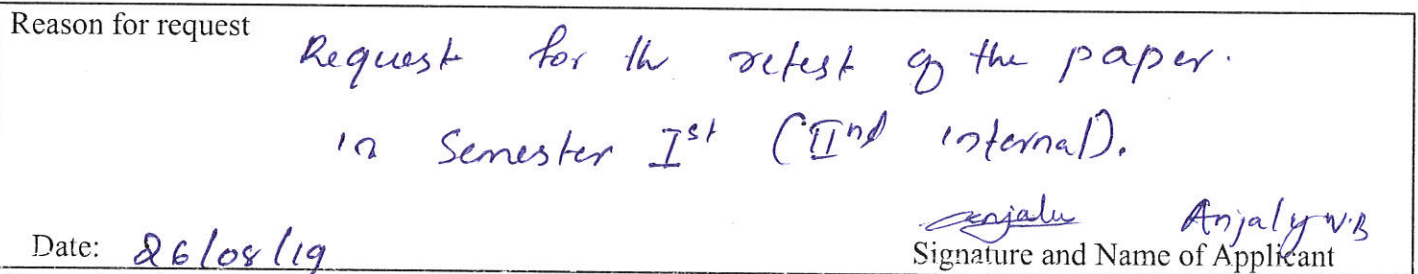 Reason for request
Request for th retest of the paper.
in Semester Ist (IInd internal).
Anjaly Anjaly V.B
Date: 26/08/19 Signature and Name of Applicant